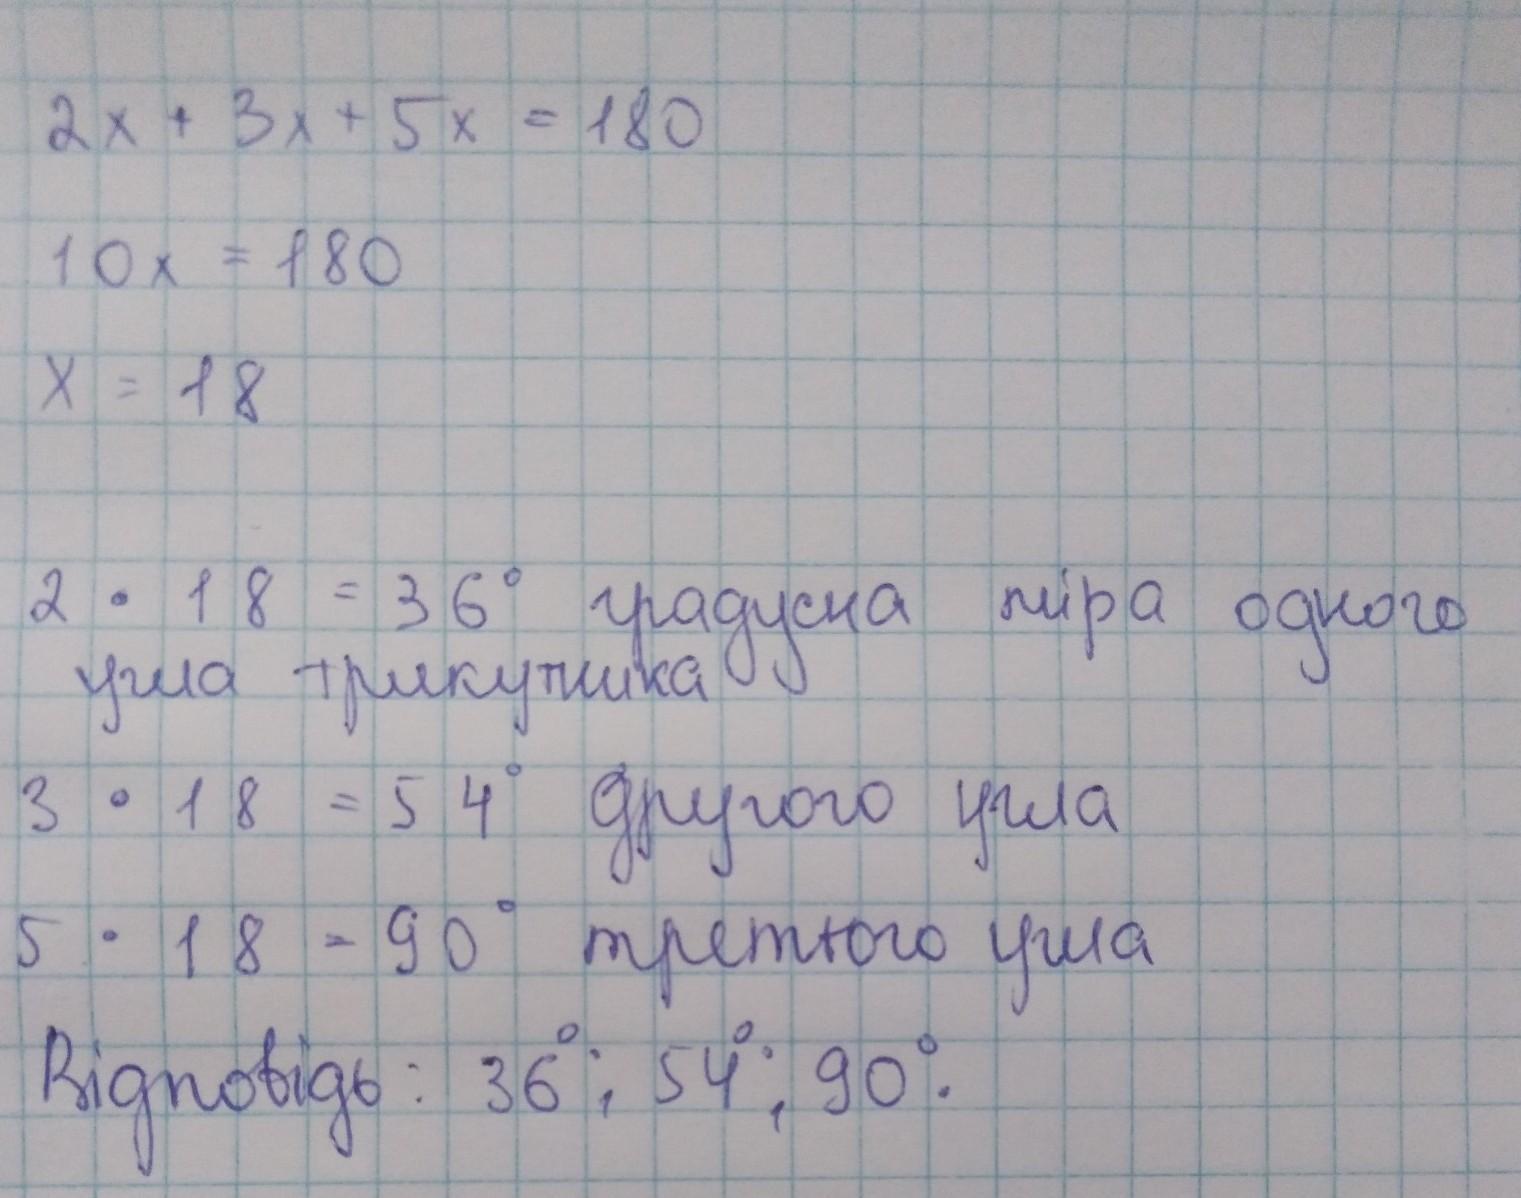 2x + 3x + 5x = 180
10x = 180
x = 18
2 · 18 = 36° градусна міра одного
угла трикутника
3 · 18 = 54° другого угла
5 · 18 = 90° третього угла
Відповідь: 36°; 54°; 90°.